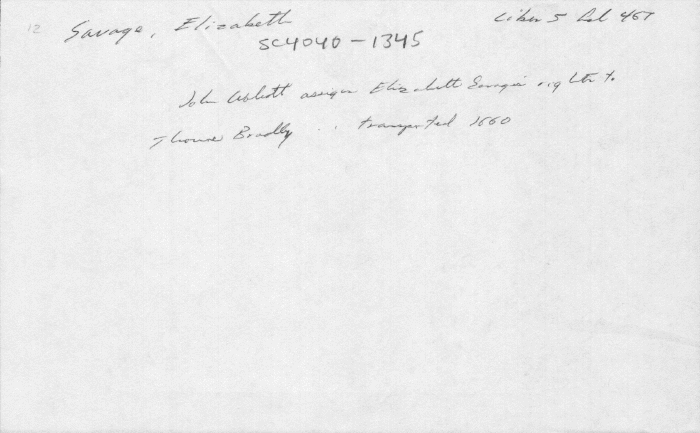 12 Savage, Elizabeth Liber 5 fol 457
SC4040-1345
John Abbott assigns Elizabeth Savage's rights to
Thomas Bradly .. transported 1660